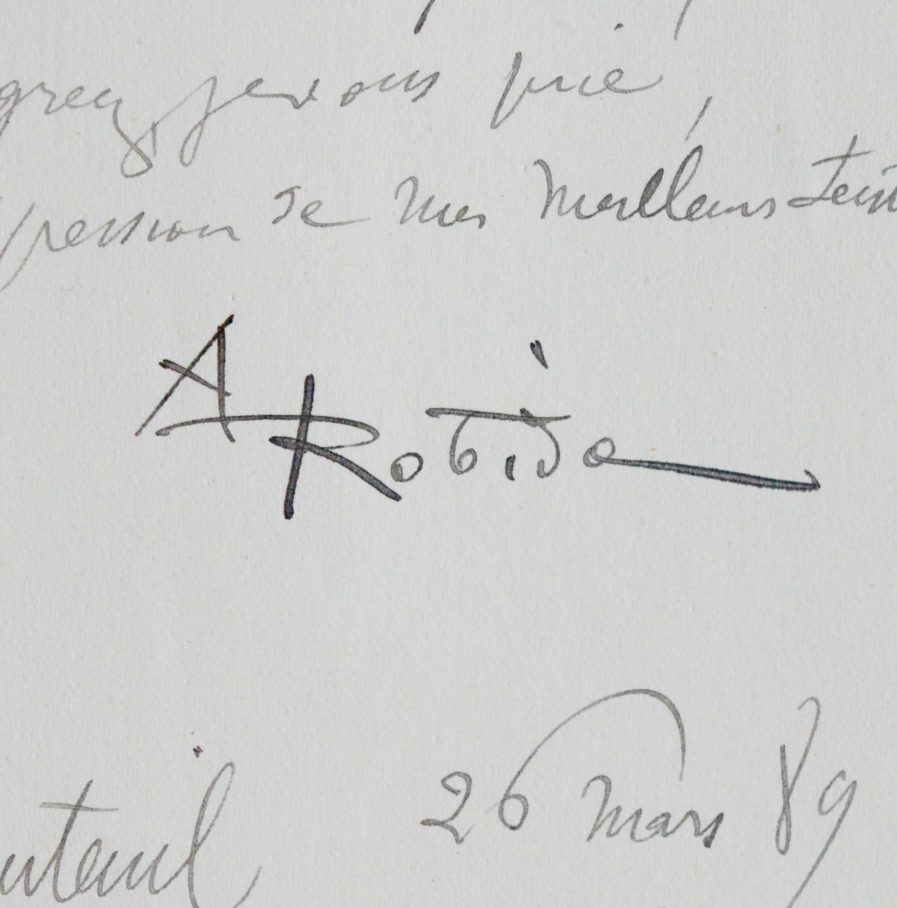 grez, je vous prie,
pression de mes meilleurs sent
A Robida
uteuil 26 mars 89